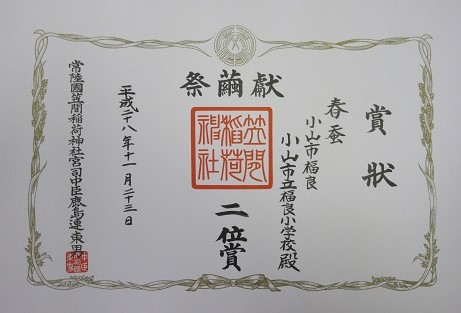 賞状
春蚕
小山市福良
小山市立福良小学校殿
献繭祭
笠間
稲荷
神社
二位賞
平成二十八年十一月二十三日
常陸國笠間稲荷神社宮司中臣鹿島連東田